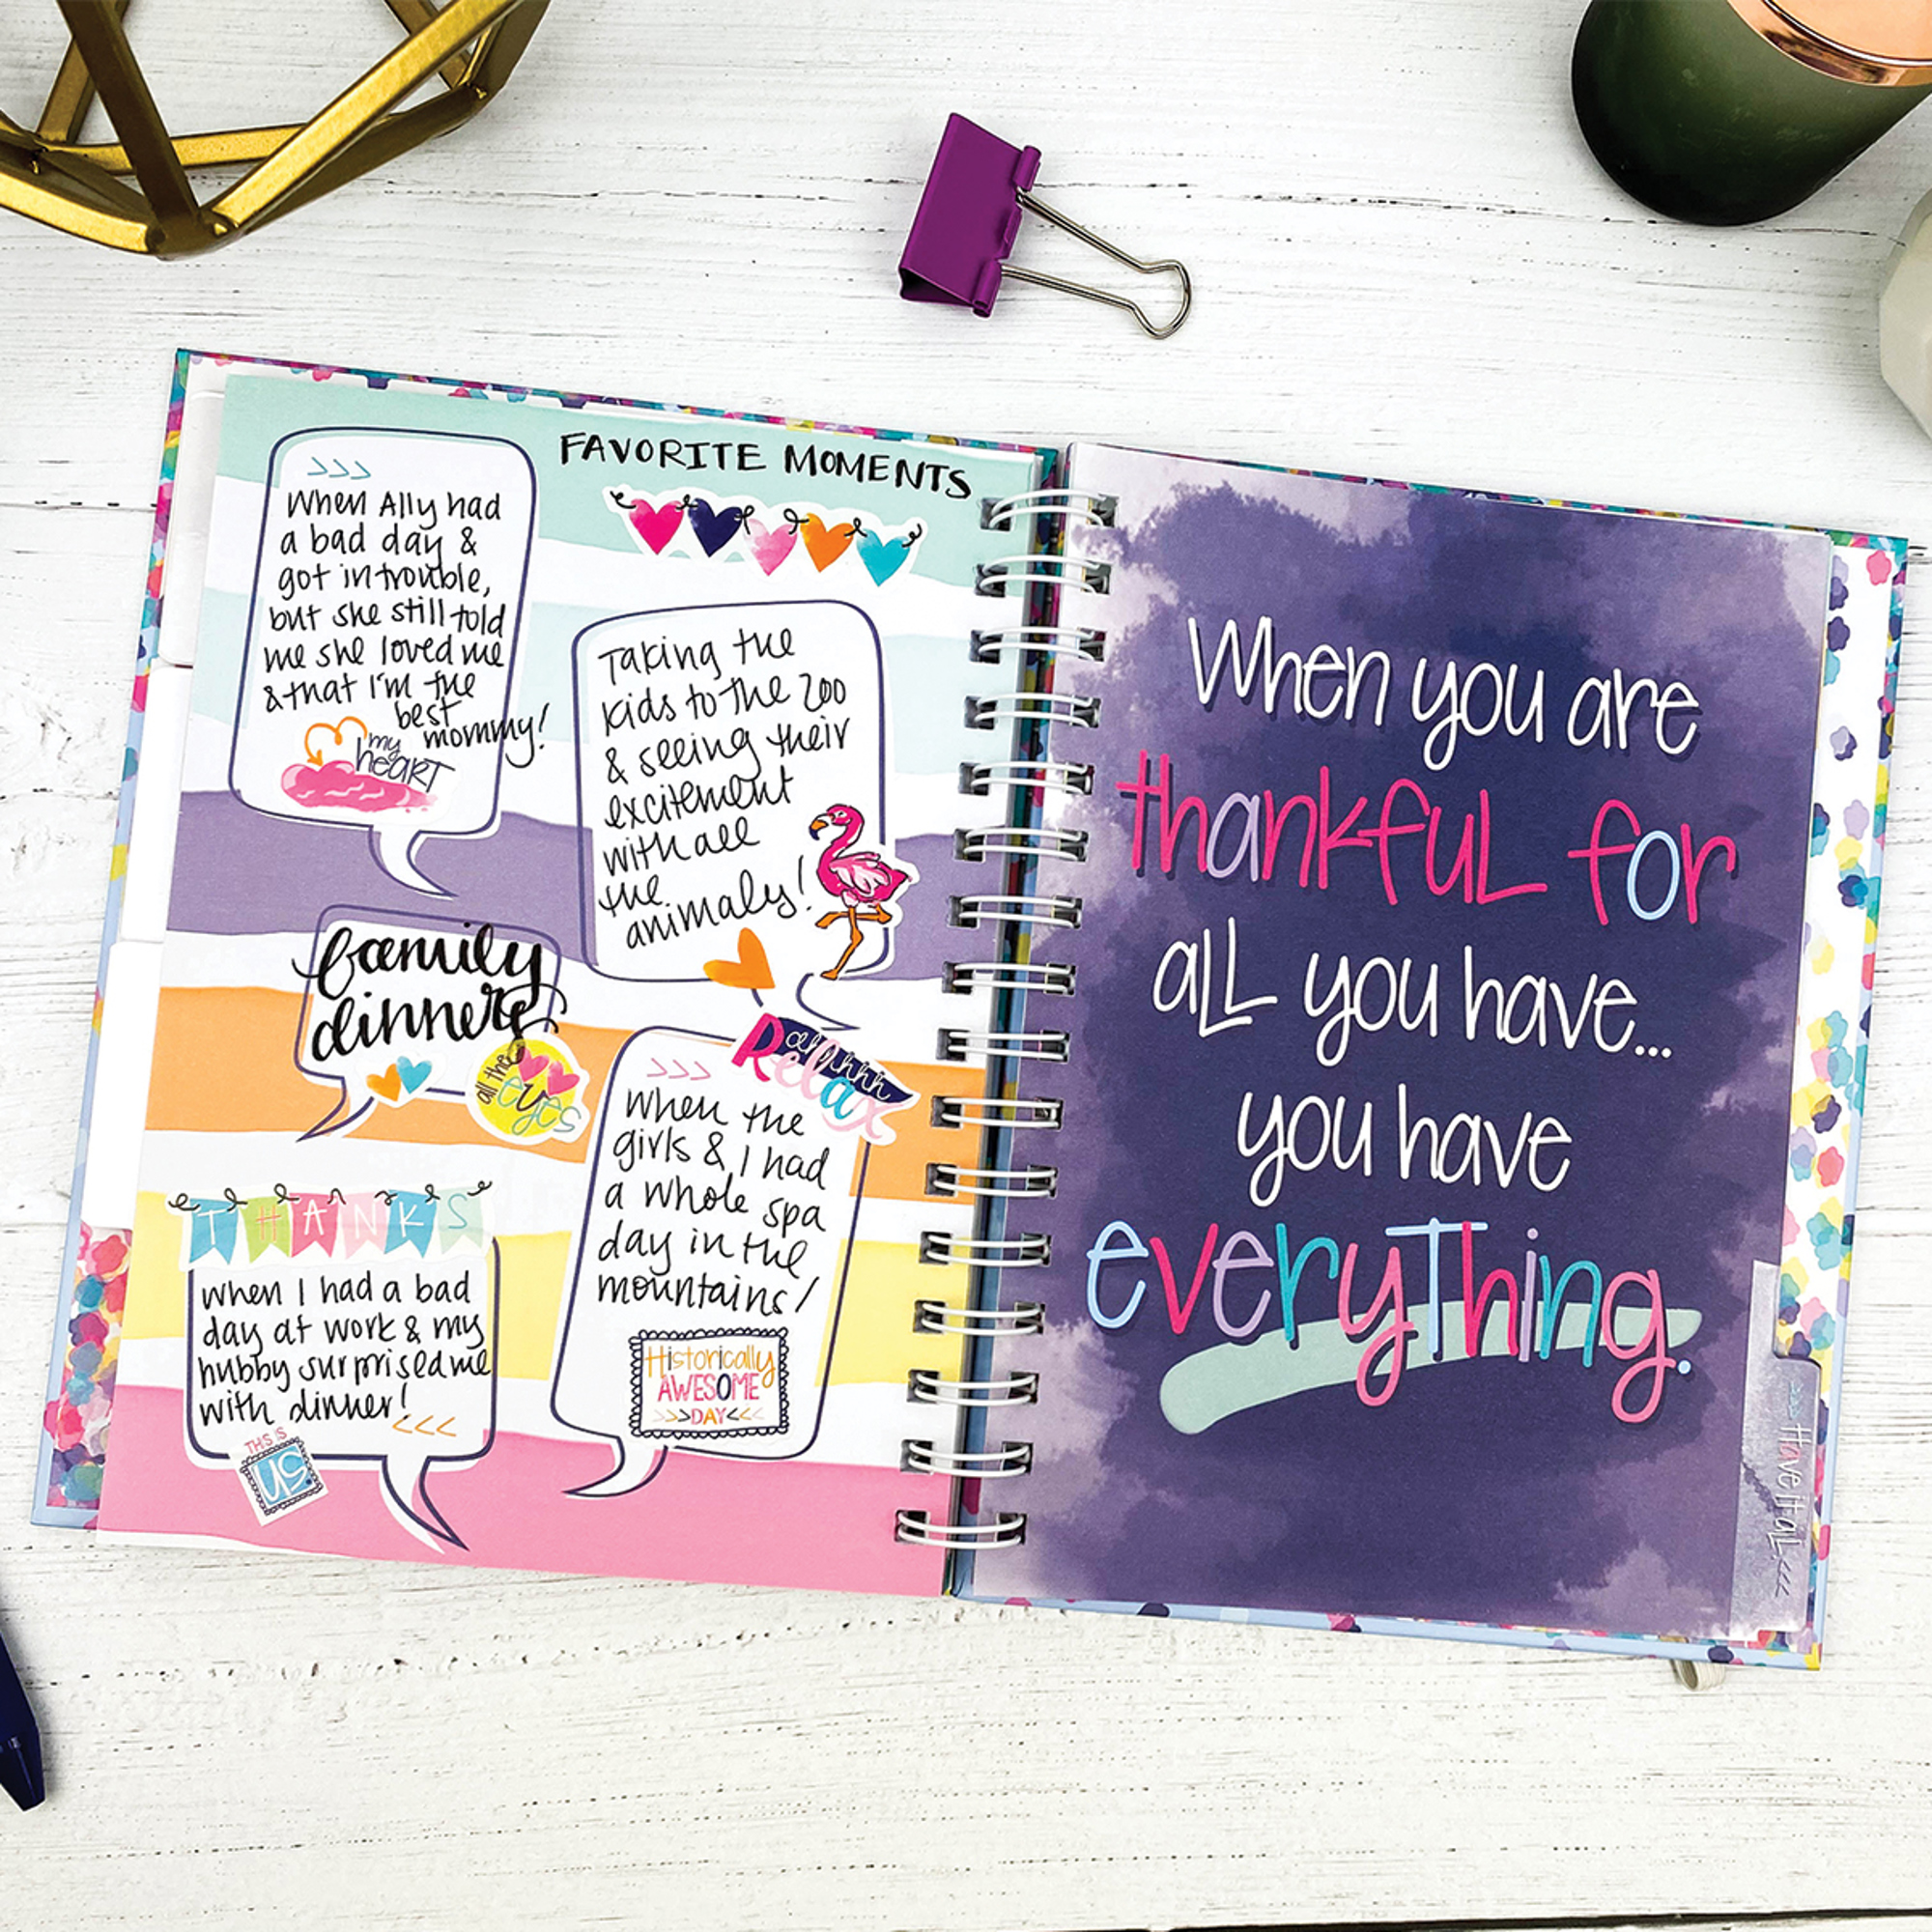 FAVORITE MOMENTS
>>>
When Ally had
a bad day &
got in trouble,
but she still told
me she loved me
& that I'm the
best
mommy!
my
heart
Taking the
kids to the zoo
& seeing their
excitement
with all
the
animals!
family
dinners
all the
eyes
ahhhh
Relax
>>>
When the
girls & I had
a whole spa
day in the
mountains!
Historically
AWESOME
>>>DAY<<<
THANKS
When I had a bad
day at work & my
hubby surprised me
with dinner!
<<<
THIS IS
US.
When you are
thankful for
all you have...
you have
everything.
>>> #Have it all <<<